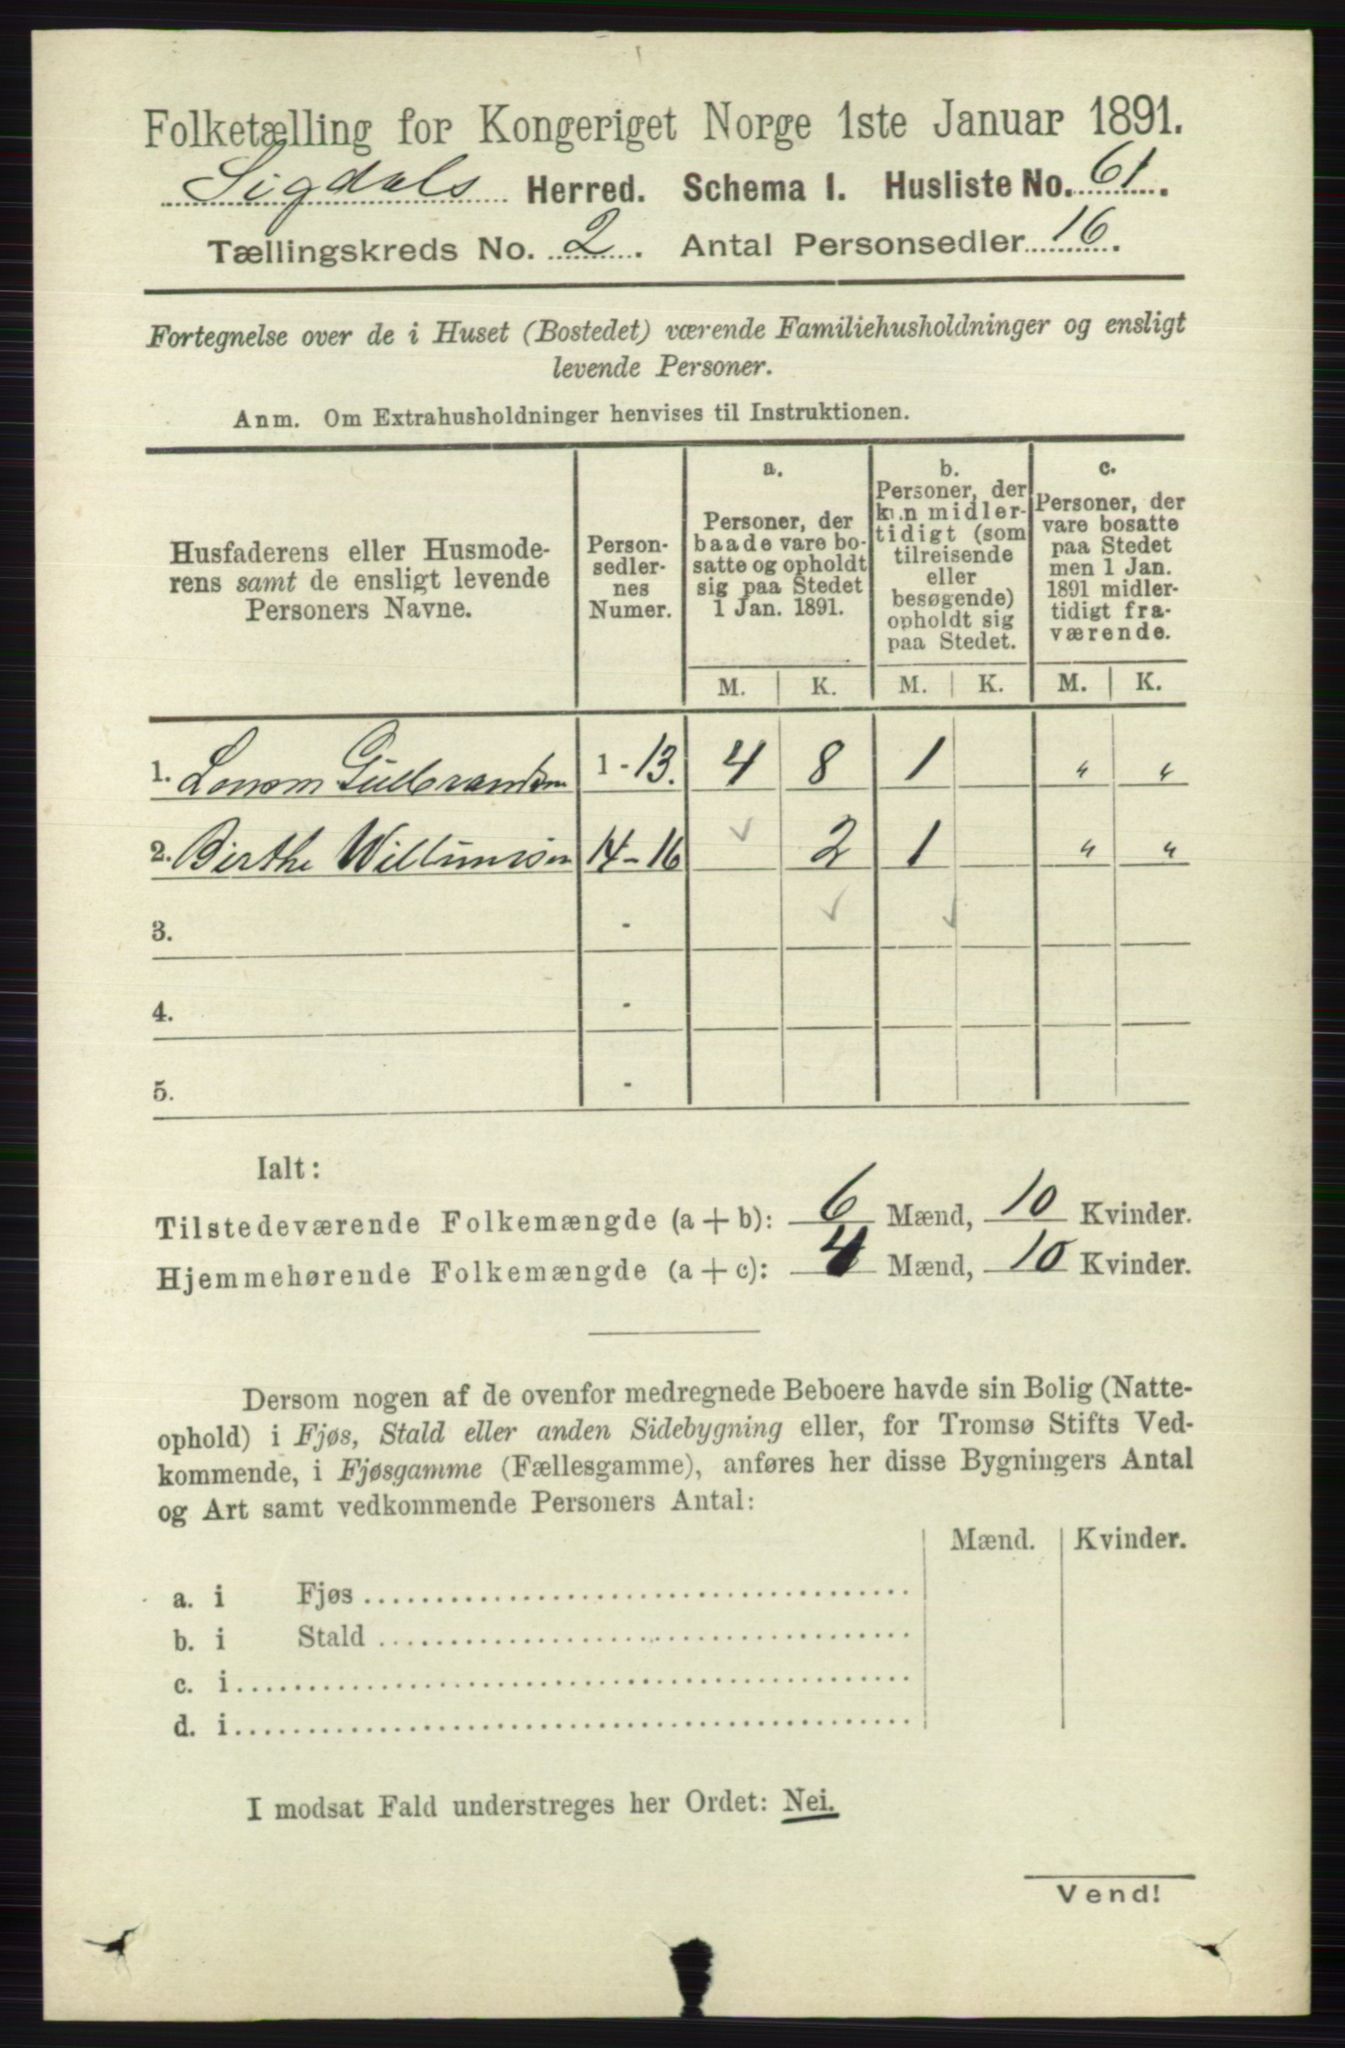 Folketælling for Kongeriget Norge 1ste Januar 1891.
Sigdals Herred. Schema I. Husliste No. 61.
Tællingskreds No. 2. Antal Personsedler 16.
Fortegnelse over de i Huset (Bostedet) værende Familiehusholdninger og ensligt
levende Personer.
Anm. Om Extrahusholdninger henvises til Instruktionen.
Husfaderens eller Husmode-
rens samt de ensligt levende
Personers Navne.
Person-
sedler-
nes
Numer.
a.
Personer, der
baade vare bo-
satte og opholdt
sig paa Stedet
1 Jan. 1891.
b.
Personer, der
kun midler-
tidigt (som
tilreisende
eller
besøgende)
opholdt sig
paa Stedet.
c.
Personer, der
vare bosatte
paa Stedet
men 1 Jan.
1891 midler-
tidigt fra-
værende.
M. K. M. K. M. K.
1. Gulbrandsen 1-13. 4 8 1 " "
2. Birthe Willumsen 14-16 2 1 " "
3. -
4. -
5. -
Ialt:
Tilstedeværende Folkemængde (a+b): 6 Mænd, 10 Kvinder.
Hjemmehørende Folkemængde (a+c): 4 Mænd, 10 Kvinder.
Dersom nogen af de ovenfor medregnede Beboere havde sin Bolig (Natte-
ophold) i Fjøs, Stald eller anden Sidebygning eller, for Tromsø Stifts Ved-
kommende, i Fjøsgamme (Fællesgamme), anføres her disse Bygningers Antal
og Art samt vedkommende Personers Antal:
Mænd. Kvinder.
a. i Fjøs
b. i Stald
c. i
d. i
I modsat Fald understreges her Ordet: Nei.
Vend!